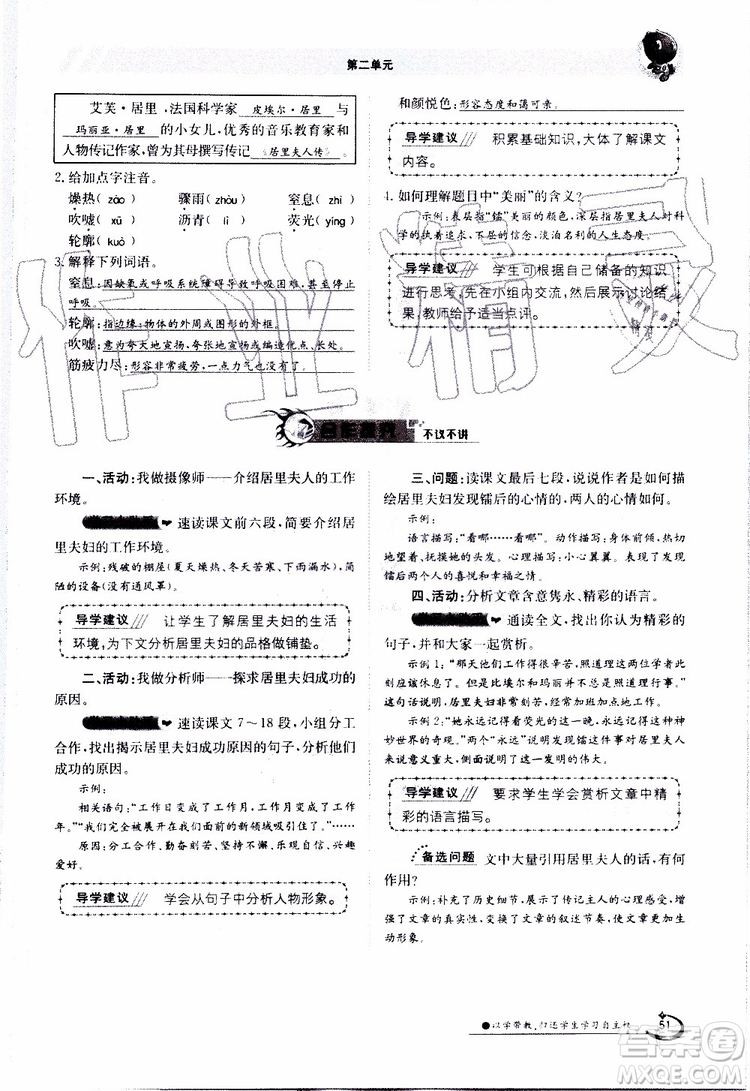 第二单元
艾芙·居里，法国科学家 皮埃尔·居里 与
玛丽亚·居里 的小女儿，优秀的音乐教育家和
人物传记作家，曾为其母撰写传记《居里夫人传》
2. 给加点字注音。
燥热(zào) 骤雨(zhòu) 窒息(zhì)
吹嘘(xū) 沥青(lì) 荧光(yíng)
轮廓(kuò)
3. 解释下列词语。
窒息：因缺氧或呼吸系统障碍导致呼吸困难或停止
呼吸。
轮廓：指边缘；物体的外周或图形的外框。
吹嘘：意为夸大地宣扬，夸张地宣扬优点、长处。
筋疲力尽：形容非常疲劳，一点力气也没有了。
和颜悦色：形容态度和蔼可亲。
导学建议 积累基础知识，大体了解课文
内容。
4. 如何理解题目中“美丽”的含义？
示例：表层指“镭”美丽的颜色，深层指居里夫人对科
学的执着追求，不屈的信念，淡泊名利的人生态度。
导学建议 学生可根据自己储备的知识
进行思考，先在小组内交流，然后展示讨论结
果，教师给予适当点评。
合作探究 不议不讲
一、活动：我做摄像师——介绍居里夫人的工作
环境。
速读课文前六段，简要介绍居
里夫妇的工作环境。
示例：残破的棚屋(夏天燥热、冬天苦寒、下雨漏水)，简
陋的设备(没有通风罩)
导学建议 让学生了解居里夫妇的生活
环境，为下文分析居里夫妇的品格做铺垫。
二、活动：我做分析师——探求居里夫妇成功的
原因。
速读课文7～18段，小组分工
合作，找出揭示居里夫妇成功原因的句子，分析他们
成功的原因。
示例：
相关语句：“工作日变成了工作月，工作月变成了工作
年。”“我们完全被展开在我们面前的新领域吸引住了。”
原因：分工合作，勤奋刻苦，坚持不懈，淡泊名利，兴趣
爱好。
导学建议 学会从句子中分析人物形象。
三、问题：读课文最后七段，说说作者是如何描
绘居里夫妇发现镭后的心情的，两人的心情如何。
示例：
语言描写：“看哪……看哪”。动作描写：身体前倾，热切
地望着，抚摸她的头发。心理描写：小心翼翼。表现了发现
镭后两个人的喜悦和可爱神情。
四、活动：分析文章含意隽永、精彩的语言。
通读全文，找出你认为精彩的
句子，并和大家一起赏析。
示例1：“那天他们工作得很辛苦，照道理两位学者此
刻应该休息。但是照道理的事，比埃尔和玛丽并不老做。”
这句话写出了居里夫妇非常刻苦，时刻加班加点地工作。
示例2：“她永远记得看荧光的这一晚，永远记得这种神
妙世界的奇观。”两个“永远”，说明发现镭对居里夫人来说
意义重大，她終生难忘。
导学建议 要求学生学会赏析文章中精
彩的语言描写。
备选问题 文中大量引用居里夫人的话，有何
作用？
示例：补充了历史细节，丰富了传记主人的心理感受，
增强了文章的真实性，变文章的叙述节奏，使文章更加生
动形象。
●以学带教，归还学生学习自主权
51
作业精灵
答案圈
MXQE.COM